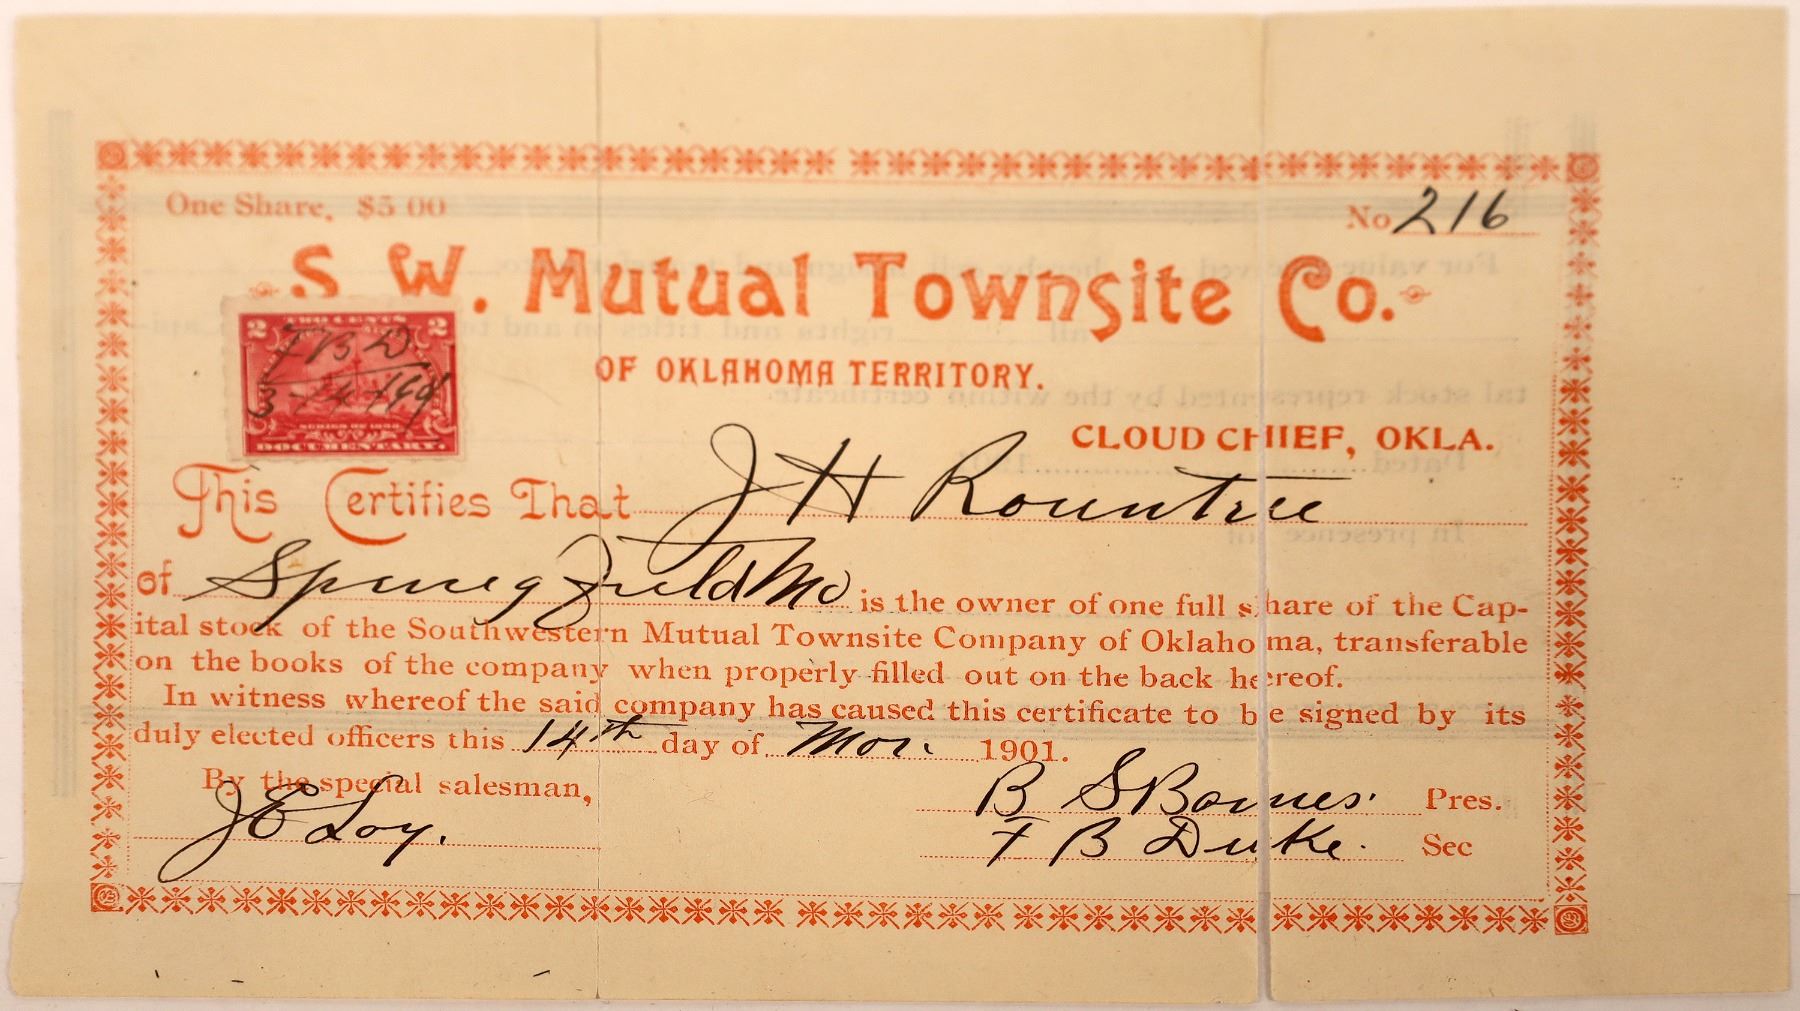 One Share, $5 00
No 216
S. W. Mutual Townsite Co.
OF OKLAHOMA TERRITORY.
2 TWO CENTS 2
F B D
3-14-1901
SERIES OF 1898
DOCUMENTARY.
CLOUD CHIEF, OKLA.
This Certifies That J H Rountree
of Springfield Mo is the owner of one full share of the Cap-
ital stock of the Southwestern Mutual Townsite Company of Oklahoma, transferable
on the books of the company when properly filled out on the back hereof.
In witness whereof the said company has caused this certificate to be signed by its
duly elected officers this 14th day of Mar. 1901.
By the special salesman,
J E Loy.
B S Barnes. Pres.
F B Duke. Sec